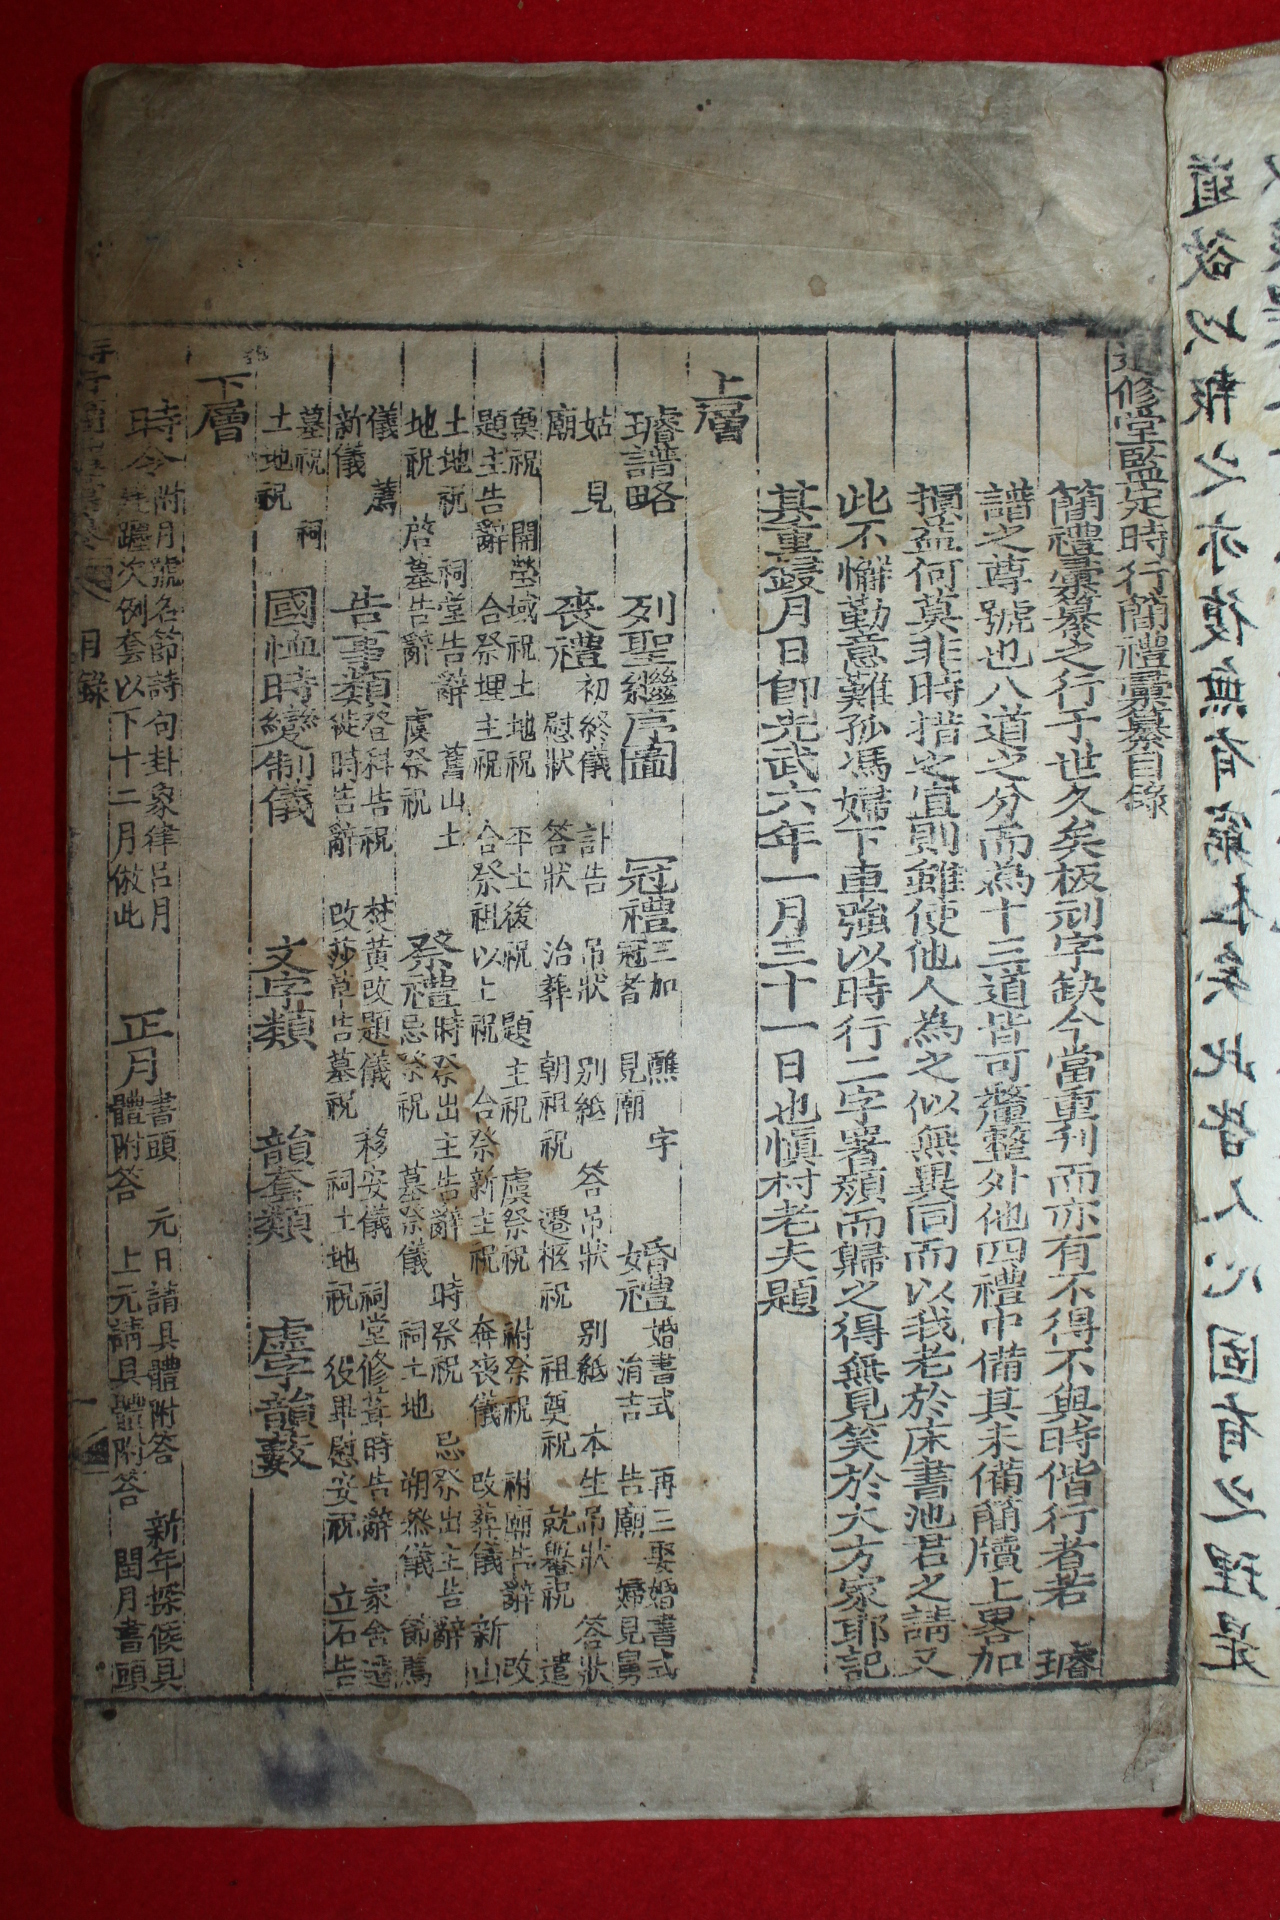 道欲以報之亦復無有窮在矣此皆人心固有之理是
追修堂監定時行簡禮彙纂目錄
簡禮彙纂之行于世久矣板刓字缺今當重刊而亦有不得不與時偕行者若　璿
譜之尊號也八道之分而為十三道皆可釐整外他四禮中備其未備簡牘上畧加
損益何莫非時措之宜則雖使他人為之似無異同而以我老於床書池君之請又
此不懈勤意難孤馮婦下車強以時行二字署顏而歸之得無見笑於大方家耶記
其重鋟月日卽光武六年一月三十一日也愼村老夫題
上層
璿譜略　列聖繼序圖　冠禮 三加　醮　字
冠者　見廟
婚禮 婚書式　再三娶婚書式
涓吉　告廟　婦見舅
姑　見
廟
喪禮 初終儀　訃告　吊狀　別紙　答吊狀　別紙　本生吊狀　答狀
慰狀　答狀　治葬　朝祖祝　遷柩祝　祖奠祝　就轝祝　遣
奠祝　開塋域祝　土地祝　平土後祝　題主祝　虞祭祝　祔祭祝　祔廟告辭　改
題主告辭　合祭埋主祝　合祭祖以上祝　合祭新主祝　奔喪儀　改葬儀　新山
土地祝　祠堂告辭　舊山土
地祝　啓墓告辭　虞祭祝
祭禮 時祭出主告辭　時祭祝　忌祭出主告辭
忌祭祝　墓祭儀　祠土地　朔叅儀　節薦
儀　薦
新儀
告事類 登科告祝　焚黃改題儀　移安儀　祠堂修葺時告辭　家舍遷
徙時告辭　改莎草告墓祝　祠土地祝　役畢慰安祝　立石告
墓祝　祠
土地祝
國恤時變制儀　文字類　韻套類　虛字韻藪
下層
時令 附月號名節詩句卦象律呂月
躔次例套以下十二月倣此
正月 書頭　元日請具體附答　新年探候具
體附答　上元請具體附答　閏月書頭
目錄
一